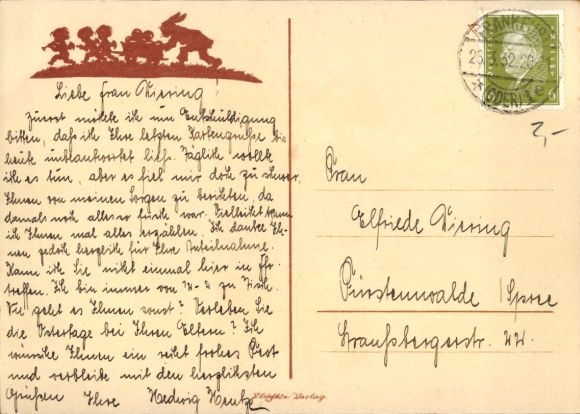 Liebe Frau Wiering!
Zuerst möchte ich um Entschuldigung
bitten, daß ich Ihre letzten Kartengrüße bis
heute unbeantwortet ließ. Täglich wollte
ich es tun, aber es fiel mir doch zu schwer,
Ihnen von meinen Sorgen zu berichten, da
damals noch alles so frisch war. Vielleicht kann
ich Ihnen mal alles erzählen. Ich danke Ih-
nen jedoch herzlich für Ihre Anteilnahme.
Kann ich Sie nicht einmal hier in Ffo.
treffen. Ich bin immer von zu Tisch.
Wie geht es Ihnen sonst? Verleben Sie
die Ostertage bei Ihren Eltern? Ich
wünsche Ihnen ein recht frohes Fest
und verbleibe mit den herzlichsten
Grüßen Ihre Hedwig
FRANKFURT
(ODER)
6
2,-
Frau
Elfriede Wiering
Fürstenwalde /Spree
Straußbergerstr. 22.
Verlag